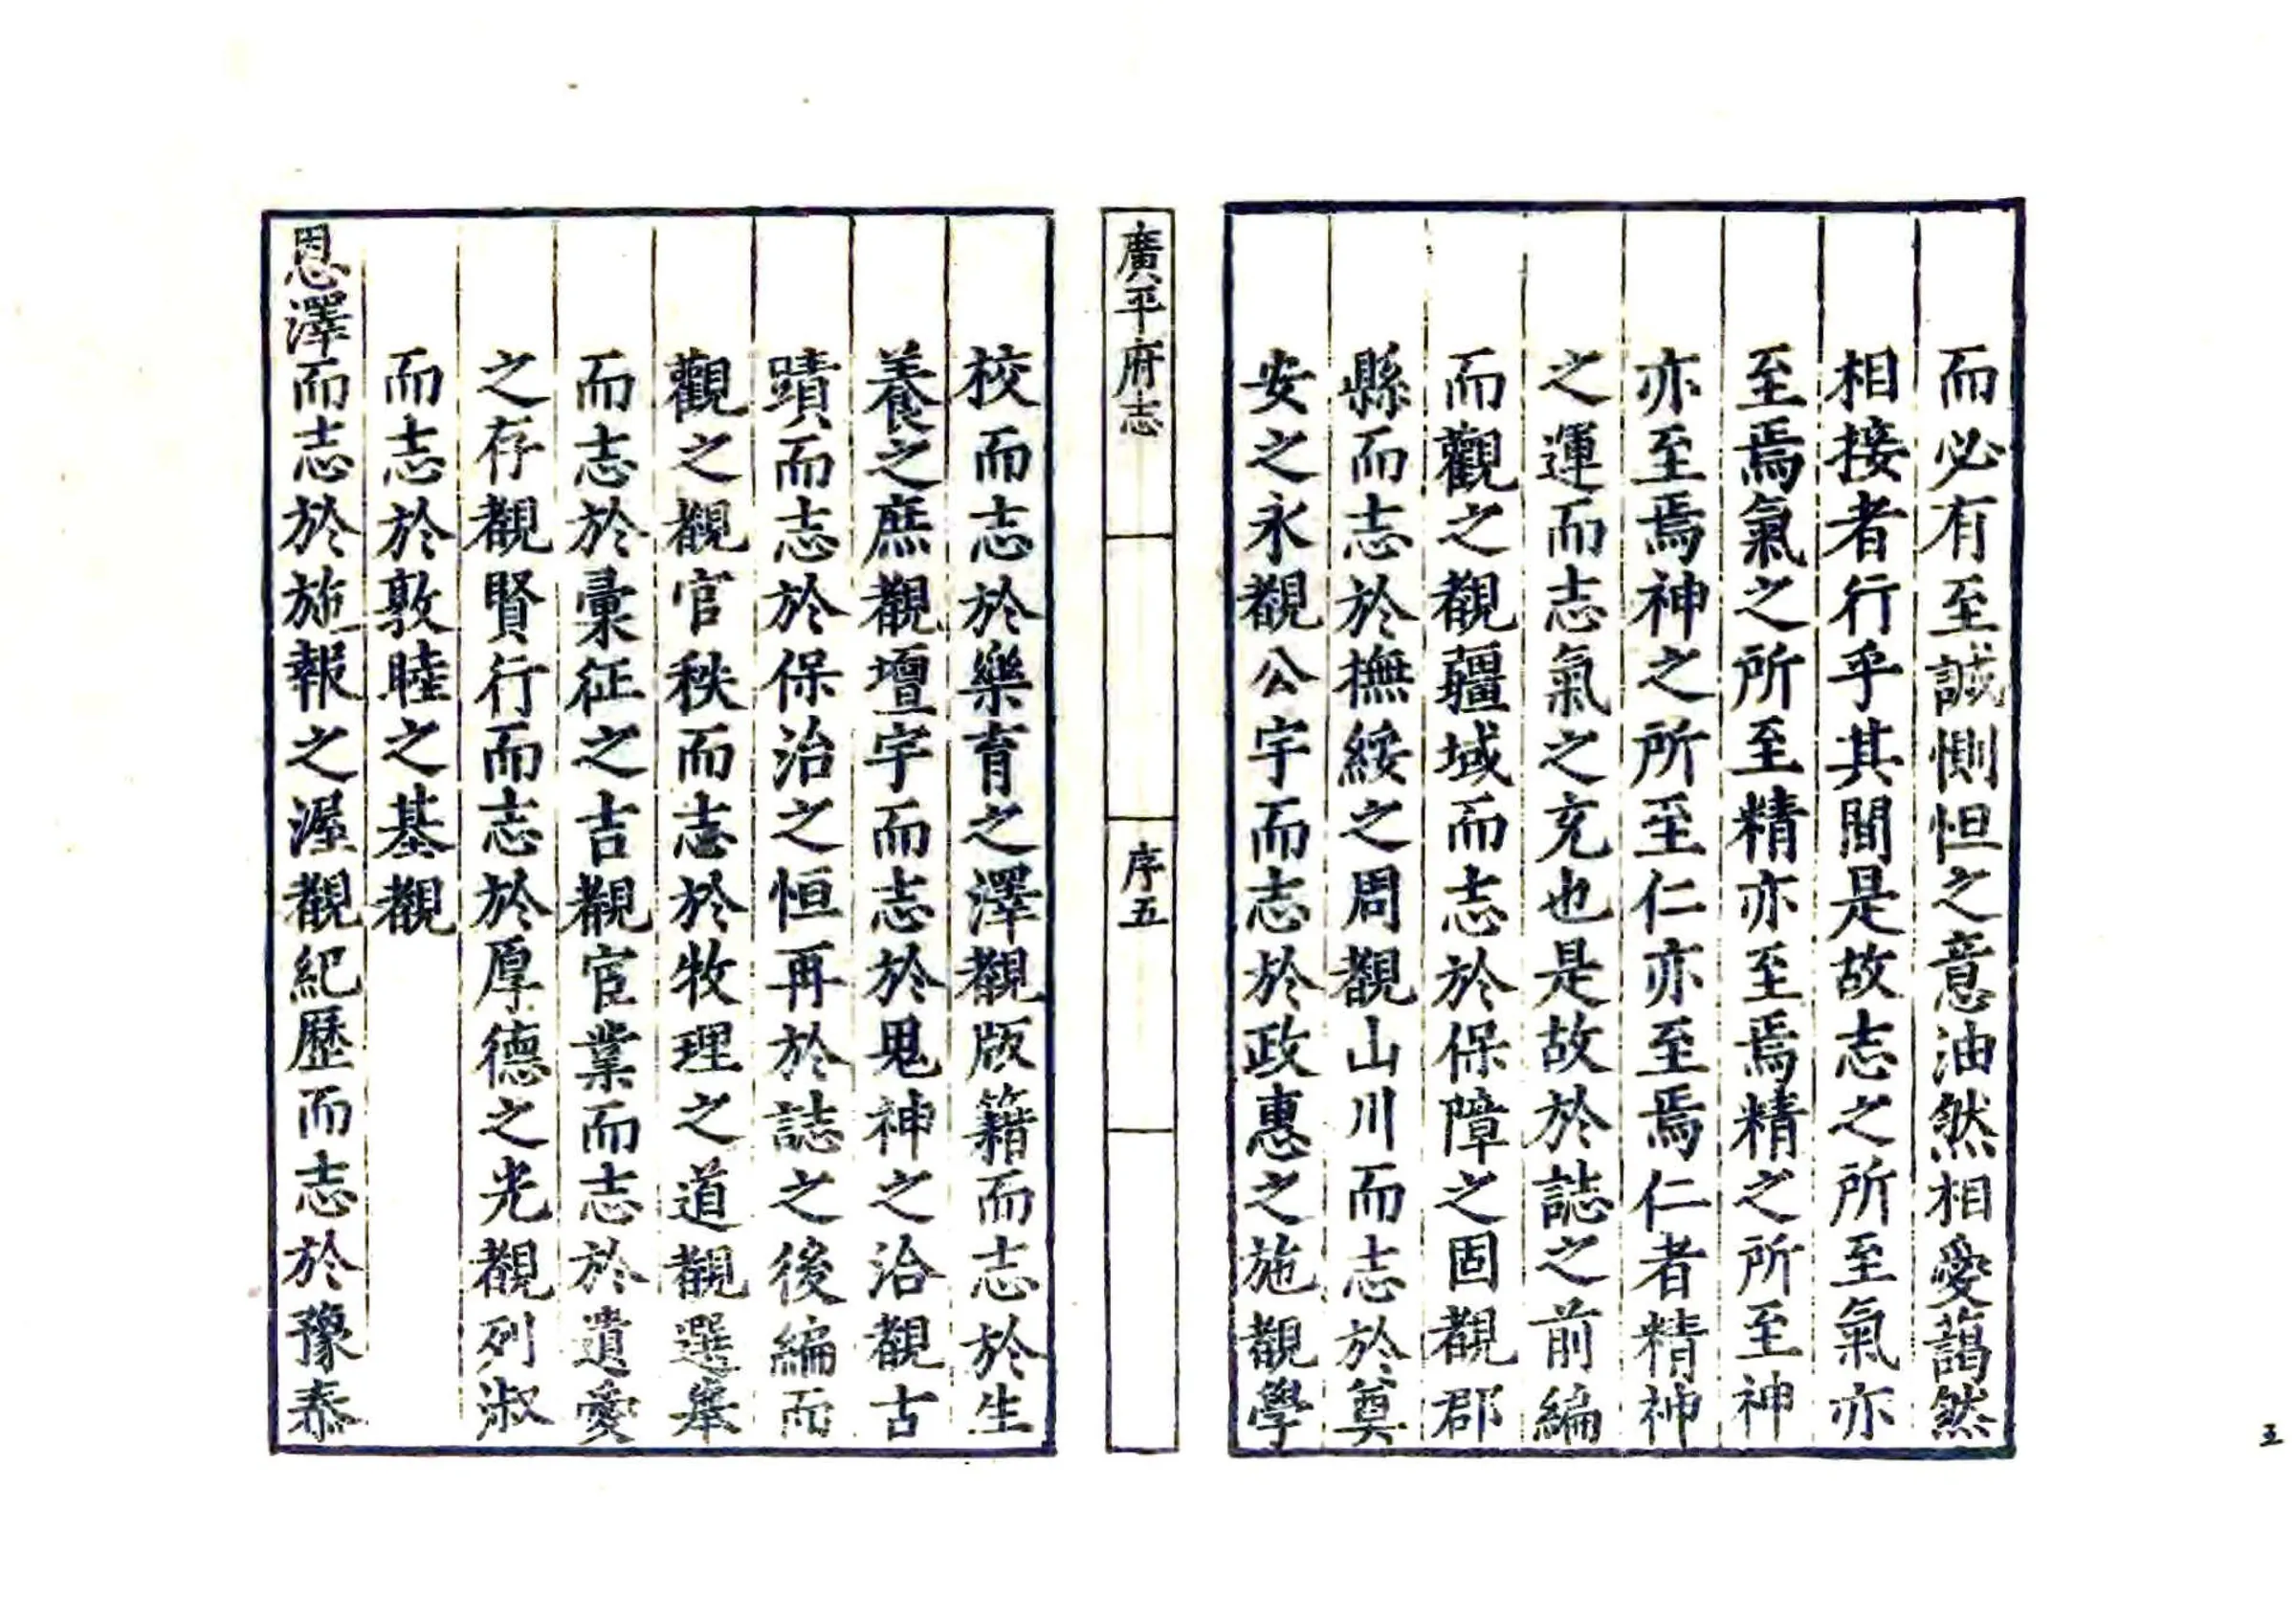 而必有至誠惻怛之意油然相愛藹然
相接者行乎其間是故志之所至氣亦
至焉氣之所至精亦至焉精之所至神
亦至焉神之所至仁亦至焉仁者精神
之運而志氣之充也是故於誌之前編
而觀之觀疆域而志於保障之固觀郡
縣而志於撫綏之周觀山川而志於奠
安之永觀公宇而志於政惠之施觀學
廣平府志
序五
校而志於樂育之澤觀版籍而志於生
養之庶觀壇宇而志於鬼神之洽觀古
蹟而志於保治之恒再於誌之後編而
觀之觀官秩而志於牧理之道觀選舉
而志於彙征之吉觀宦業而志於遺愛
之存觀賢行而志於厚德之光觀列淑
而志於敦睦之基觀
恩澤而志於施報之渥觀紀歷而志於豫泰
五